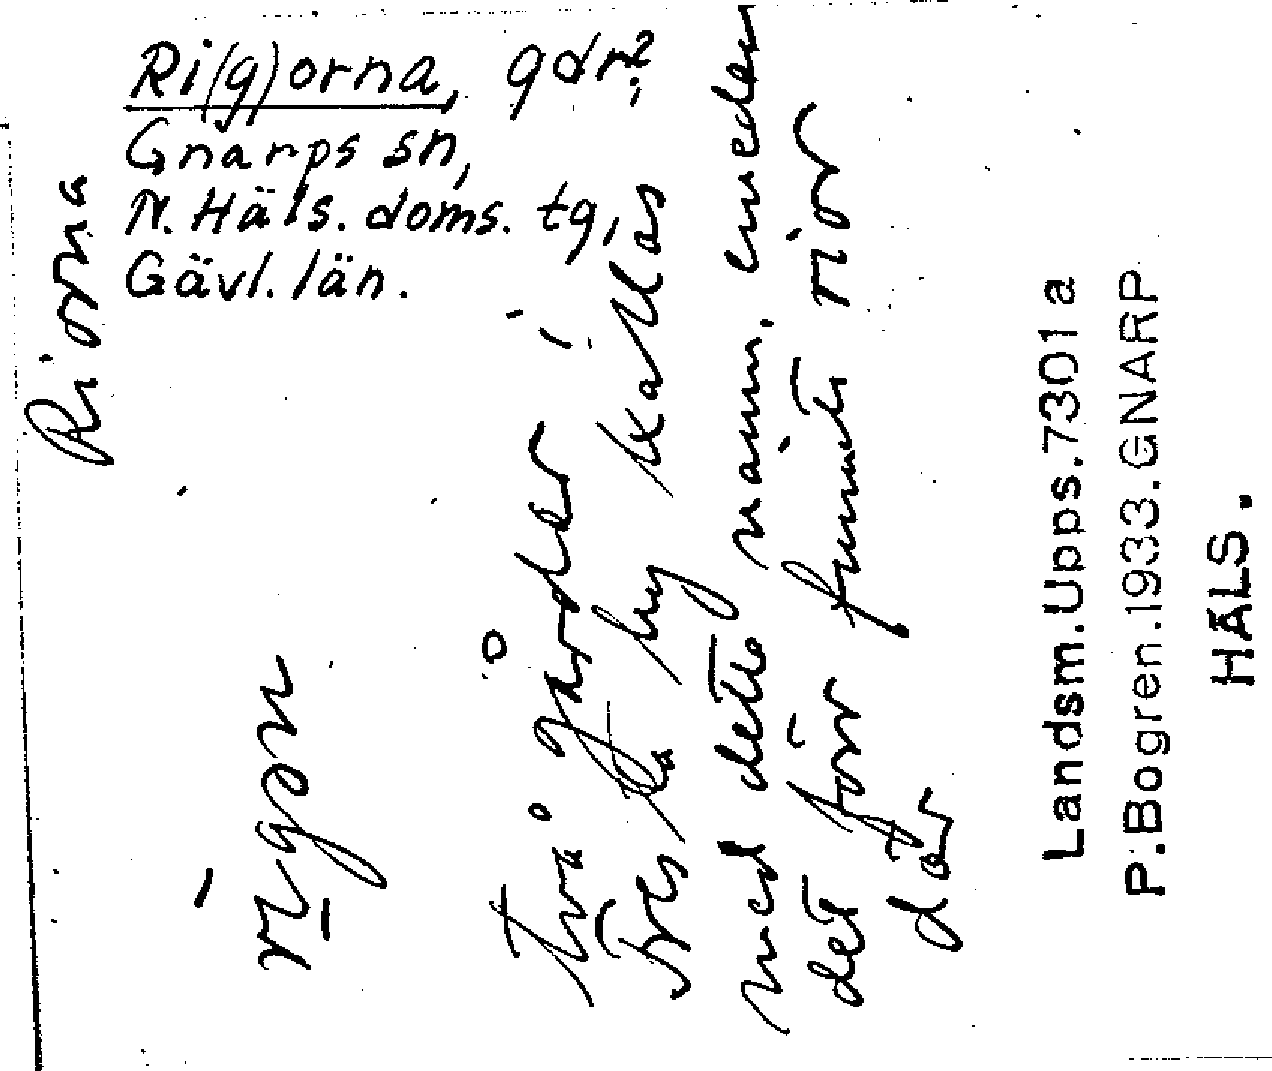 Ri(g)orna, gdr?
Gnarps sn,
N. Häls. doms. tg,
Gävl. län.
Riorna
två gårder i
by kallas
med detta namn, emedan
det för funnits rior
där
Landsm.Upps.7301a
P.Bogren.1933.GNARP
HÄLS.